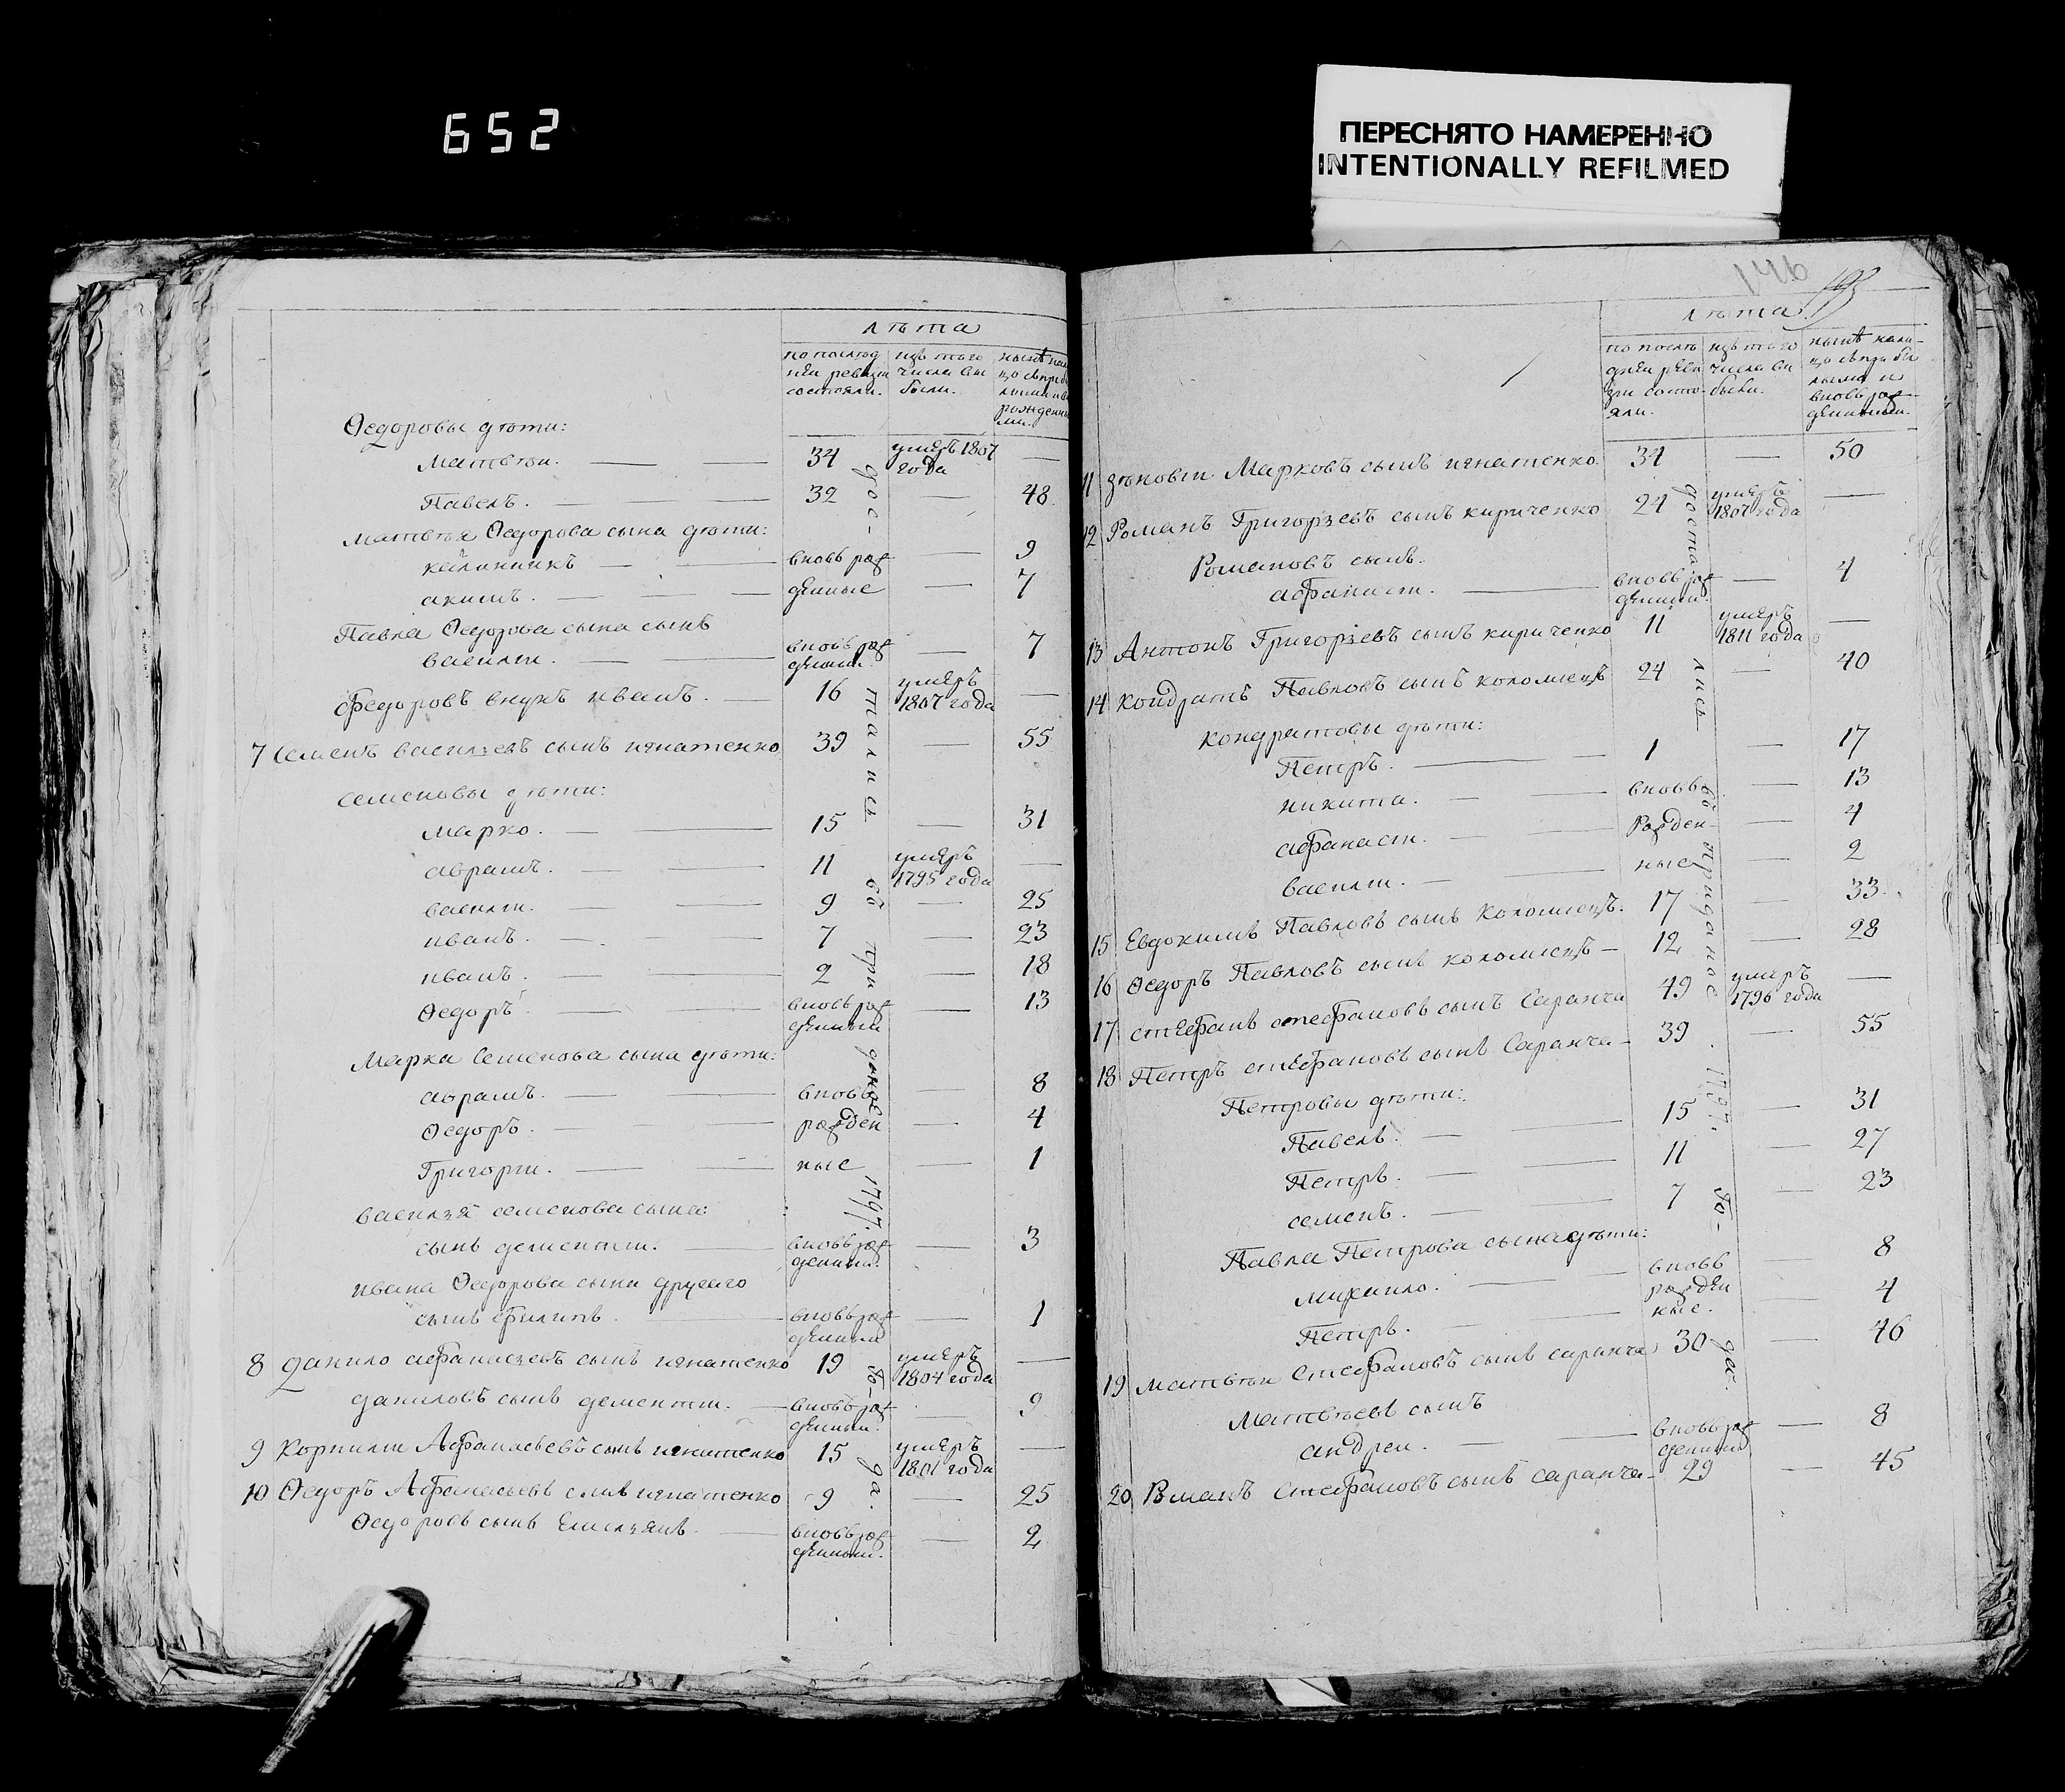 652
ПЕРЕСНЯТО НАМЕРЕННО
INTENTIONALLY REFILMED
лѣта
по послѣд изъ того нынѣ на
ней ревизіи числа вы
состояли. были.
рожденны
ми.
Ѳедоровы дѣти:
Матвѣй. 34 умеръ 1807 года —
Павелъ. 32 — 48.
Матвѣя Ѳедорова сына дѣти:
калинникъ — вновь рож — 9
акимъ. — денные — 7
Павла Ѳедорова сына сынъ
василій. — вновь рожденный. — 7
Федоровъ внукъ иванъ. — 16 умеръ 1807 года —
7 Семенъ васильевъ сынъ игнатенко 39 — 55
семеновы дѣти:
марко. — 15 — 31
абрамъ. — 11 умеръ 1795 года —
василій. — 9 — 25
иванъ. — 7 — 23
иванъ. — 2 — 18
Ѳедоръ — вновь рожденный — 13
Марка Семенова сына дѣти:
абрамъ. — вновь — 8
Ѳедоръ. — рожден — 4
Григорій. — ные — 1
василья семенова сына:
сынъ дементій. — вновь рожденный. — 3
ивана Ѳедорова сына другаго
сынъ филипъ. — вновь рожденный — 1
8 Данило афанасьевъ сынъ игнатенко 19 умеръ 1804 года —
даниловъ сынъ дементій. — вновь рожденный. — 9
9 Корнилій Афанасьевъ сынъ игнатенко 15 умеръ 1801 года —
10 Ѳедоръ Афанасьевъ сынъ игнатенко 9 — 25
Ѳедоровъ сынъ Емельянъ. — вновь рожденный. — 2
дос-
тались
въ
при
даное
1797.
го-
да.
146
лѣта.
по послѣ изъ того нынѣ нали-
дней реви числа вы цо съ прибы
зіи состо- были. лыми и
яли. вновь рож
денными.
11 зѣновій Марковъ сынъ игнатенко. 34 — 50
12 Романъ Григорьевъ сынъ кириченко 24 умеръ 1807 года —
Романовъ сынъ.
афанасій. — вновь рожденный. — 4
13 Антонъ Григорьевъ сынъ кириченко 11 умеръ 1811 года —
14 кондратъ Павловъ сынъ коломіецъ 24 — 40
кондратовы дѣти:
Петръ. — 1 — 17
никита. — вновь — 13
афанасій. — рожден — 4
василій. — ные — 2
15 Евдокимъ Павловъ сынъ Коломіецъ. 17 — 33.
16 Ѳедоръ Павловъ сынъ коломіецъ — 12 — 28
17 стефанъ стефановъ сынъ Саранча 49 умеръ 1796 года —
18 Петръ стефановъ сынъ Саранча — 39 — 55
Петровы дѣти:
Павелъ. — 15 — 31
Петръ. — 11 — 27
семенъ. — 7 — 23
Павла Петрова сына дѣти:
михаило. — вновь — 8
Петръ. — рожден ные. — 4
19 матвѣй Стефановъ сынъ саранча 30 — 46
Матвѣевъ сынъ
андрей. — вновь рожденный — 8
20 Романъ Стефановъ сынъ саранча — 29 — 45
доста
лись
въ приданое
1797.
го-
да.